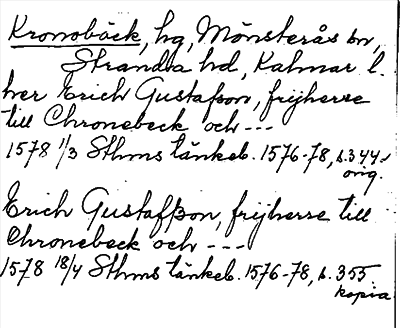 Kronobäck, hg, Mönsterås sn,
Stranda hd, Kalmar l.
her Erich Gustafson, frijherre
till Chronebeck och ---
1578 1/3 Sthms tänkeb. 1576-78, s. 344
orig.
Erich Gustafßon, frijherre till
Chronebeck och ---
1578 18/4 Sthms tänkeb. 1576-78, s. 355
kopia